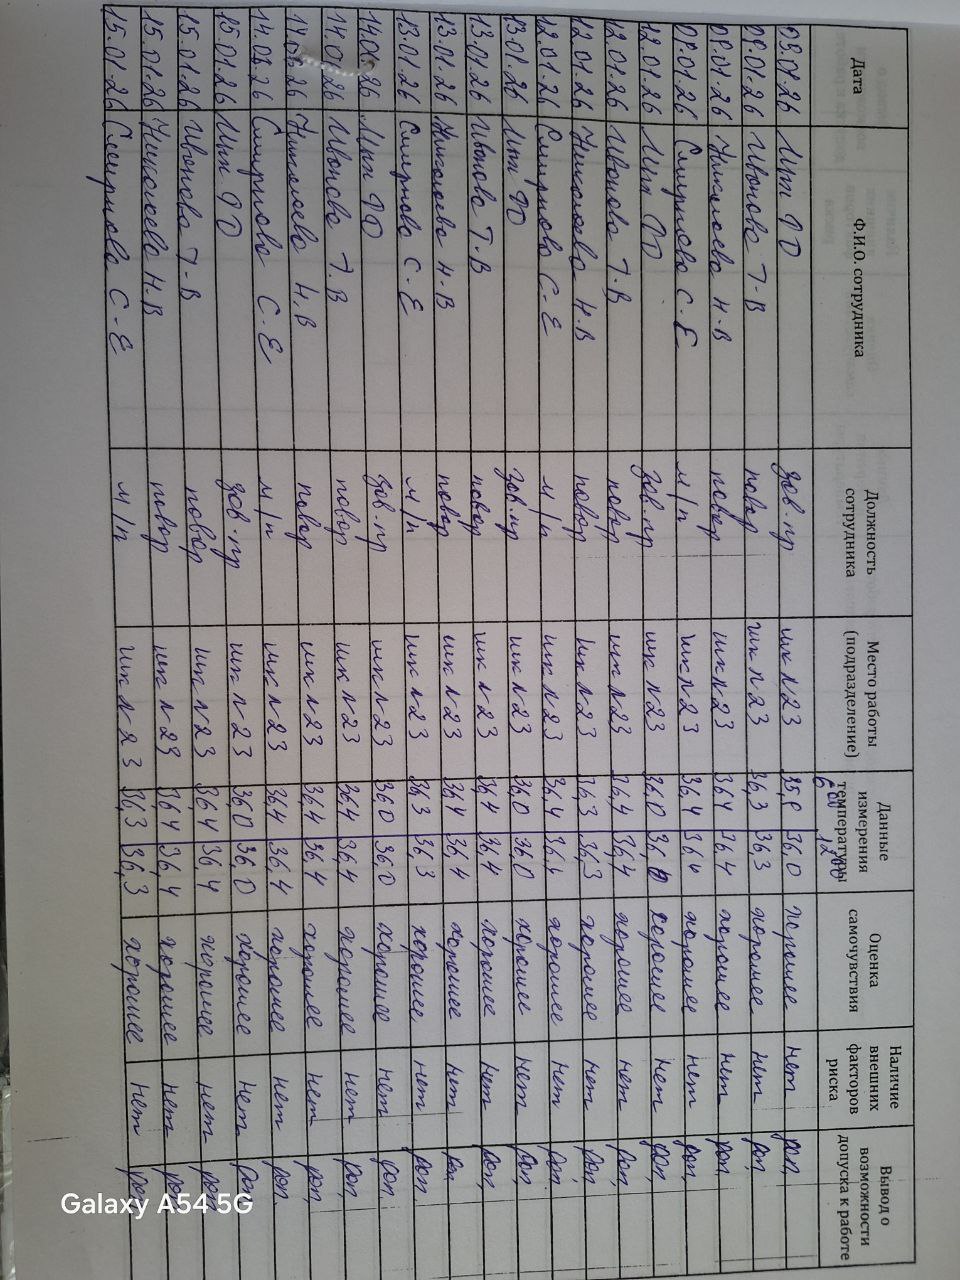 Дата Ф.И.О. сотрудника Должность сотрудника Место работы (подразделение) Данные измерения температуры Оценка самочувствия Наличие внешних факторов риска Вывод о возможности допуска к работе
6 00 12 00
09.01.26 зав.пр шк №23 35,8 36,0 хорошее нет доп,
09.01.26 Иванова Т-В повар шк №23 36,3 36,3 хорошее нет доп,
09.01.26 Николаева Н.В повар шк №23 36,4 36,4 хорошее нет доп,
09.01.26 Смирнова С.Е м/п шк №23 36,4 36,4 хорошее нет доп,
12.01.26 зав.пр шк №23 36,0 36,0 хорошее нет доп,
12.01.26 Иванова Т.В повар шк №23 36,4 36,4 хорошее нет доп,
12.01.26 Николаева Н.В повар шк №23 36,3 36,3 хорошее нет доп,
12.01.26 Смирнова С-Е м/п шк №23 36,4 36,4 хорошее нет доп,
13.01.26 зав.пр шк №23 36,0 36,0 хорошее нет доп,
13.01.26 Иванова Т.В повар шк №23 36,4 36,4 хорошее нет доп,
13.01.26 Николаева Н-В повар шк №23 36,4 36,4 хорошее нет доп
13.01.26 Смирнова С-Е м/п шк №23 36,3 36,3 хорошее нет доп
зав.пр шк №23 36,0 36,0 хорошее нет доп
Иванова Т.В повар шк №23 36,4 36,4 хорошее нет доп,
Николаева Н.В повар шк №23 36,4 36,4 хорошее нет доп,
Смирнова С.Е м/п шк №23 36,4 36,4 хорошее нет доп.
15.01.26 зав.пр шк №23 36,0 36,0 хорошее нет доп
15.01.26 Иванова Т-В повар шк №23 36,4 36,4 хорошее нет доп
15.01.26 Николаева Н.В повар шк №23 36,4 36,4 хорошее нет доп
15.01.26 Смирнова С-Е м/п шк №23 36,3 36,3 хорошее нет доп
Galaxy A54 5G